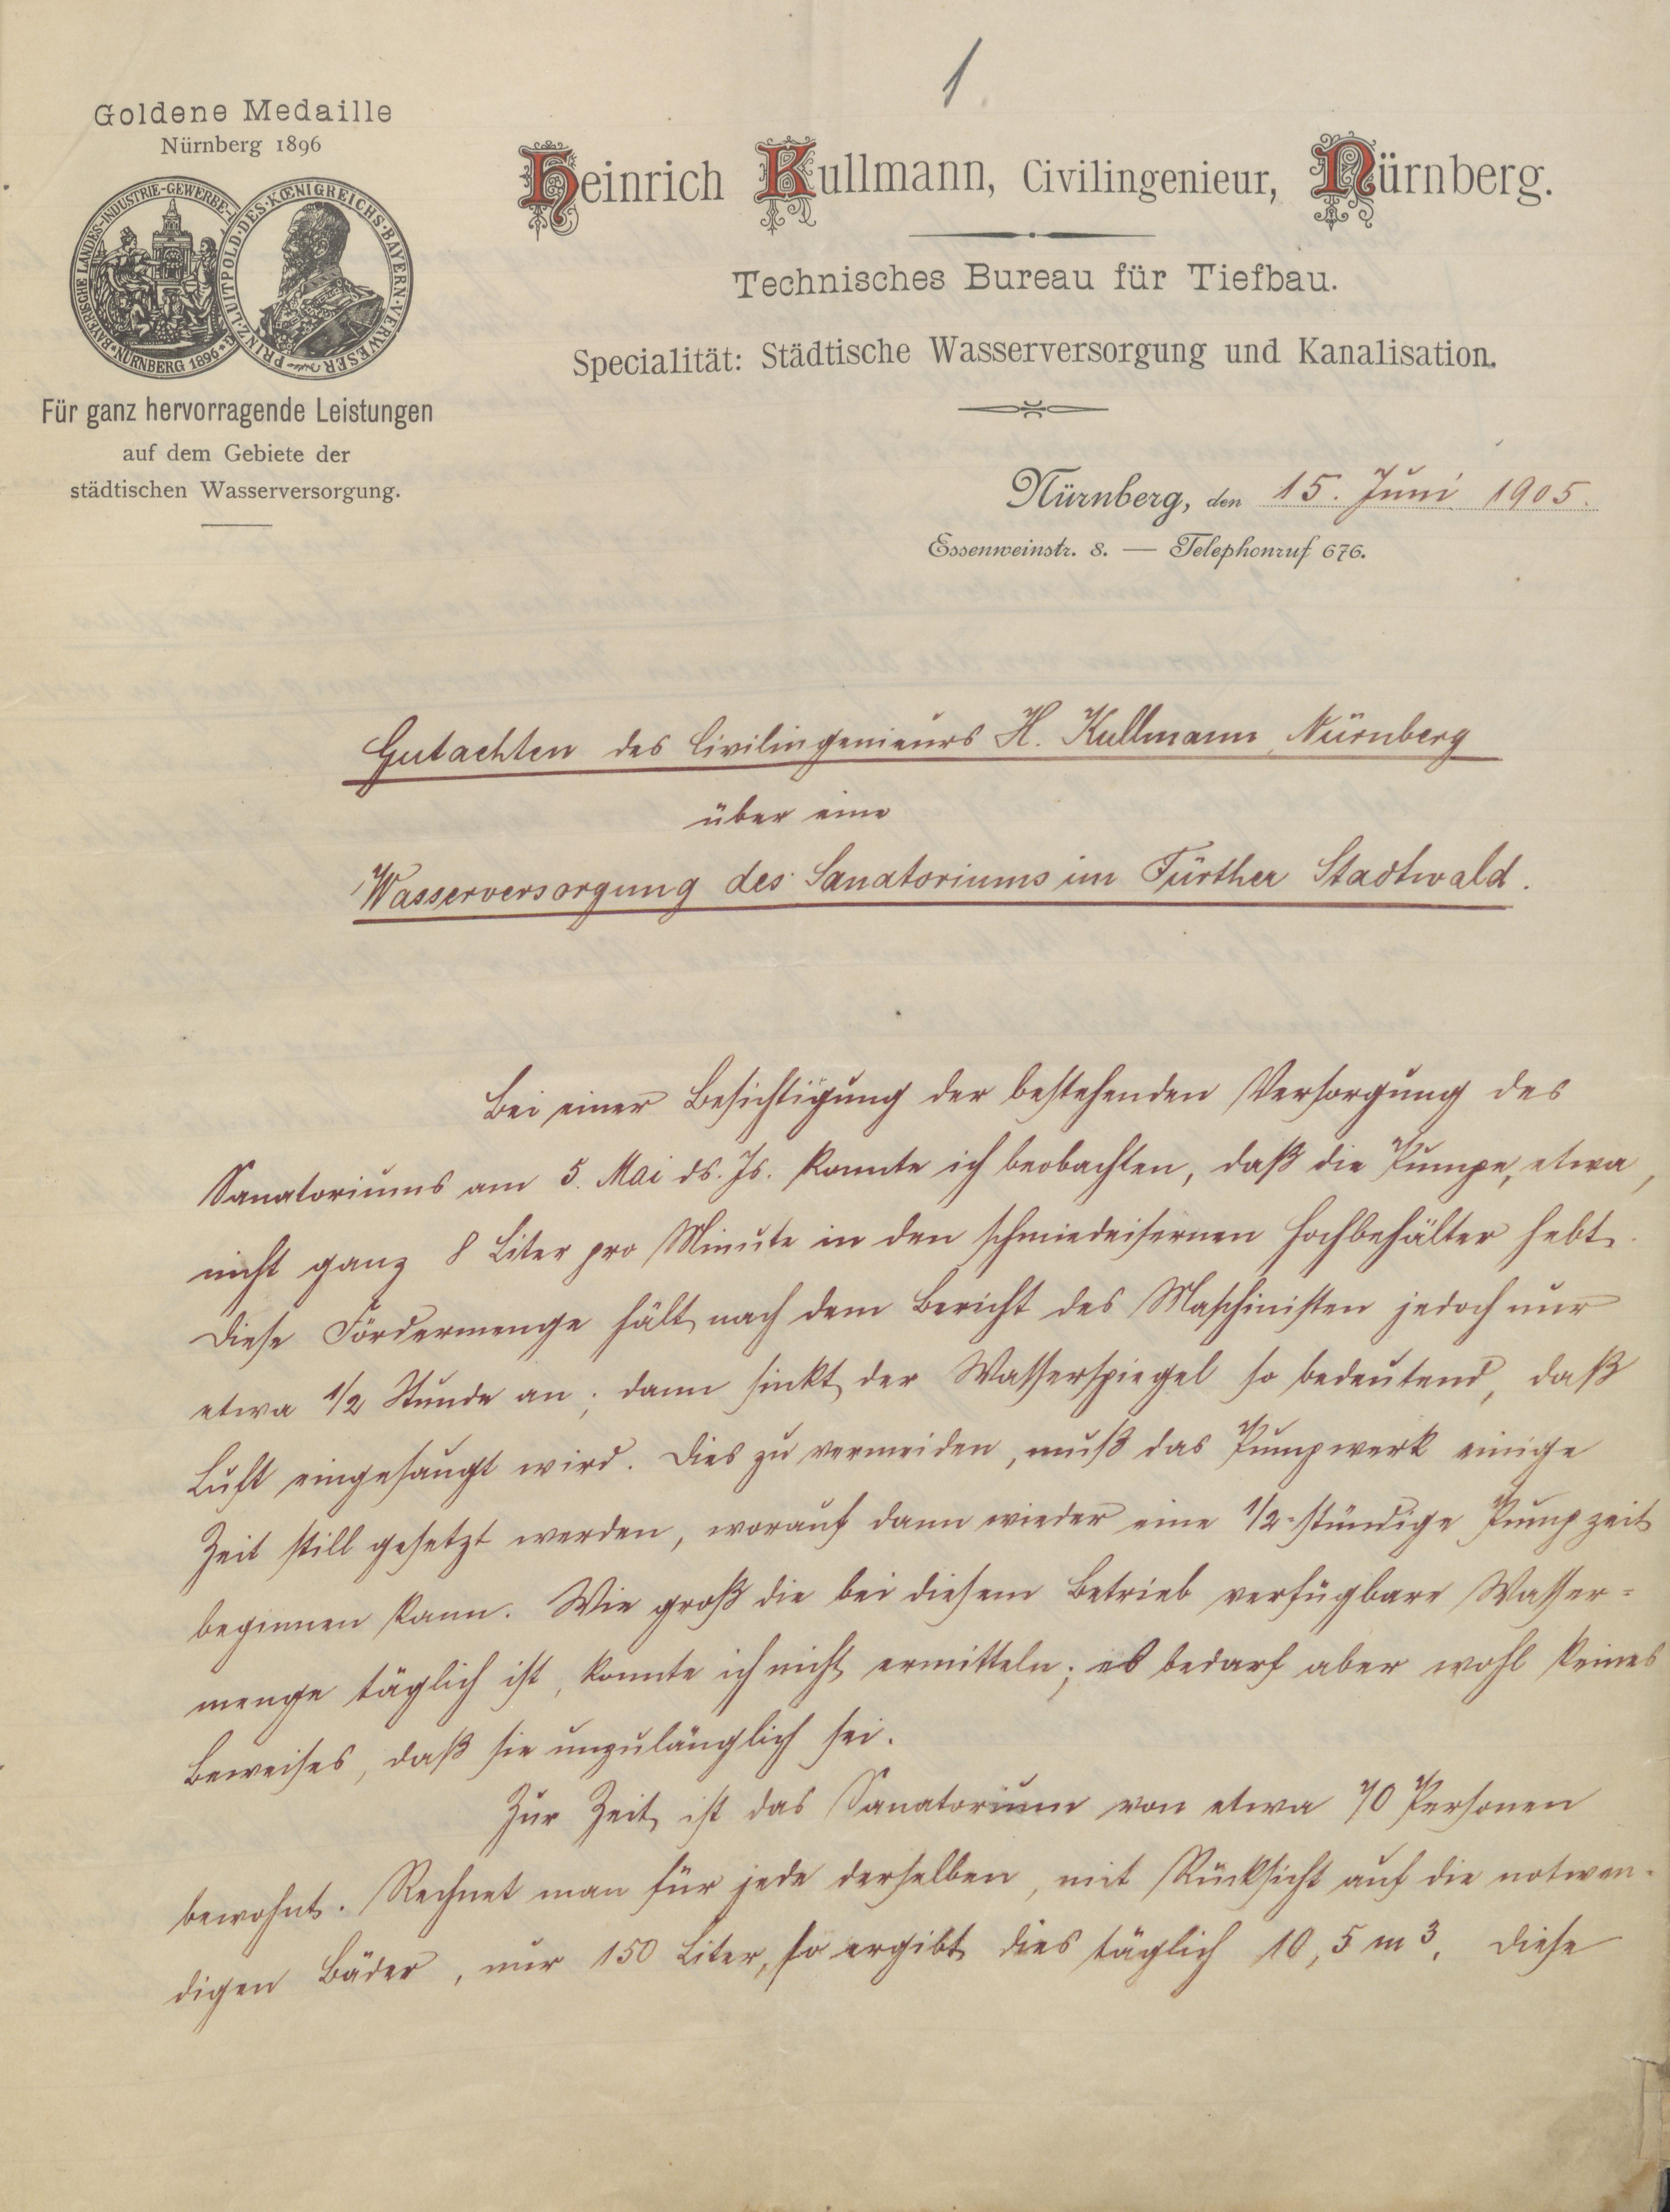 1
Goldene Medaille
Nürnberg 1896
BAYERISCHE LANDES-INDUSTRIE-GEWERBE-
NÜRNBERG 1896
PRINZ·LUITPOLD·DES·KŒNIGREICHS·BAYERN·VERWESER
Für ganz hervorragende Leistungen
auf dem Gebiete der
städtischen Wasserversorgung.
Heinrich Kullmann, Civilingenieur, Nürnberg.
Technisches Bureau für Tiefbau.
Specialität: Städtische Wasserversorgung und Kanalisation.
Nürnberg, den 15. Juni 1905.
Essenweinstr. 8. — Telephonruf 676.
Gutachten des Civilingenieurs H. Kullmann, Nürnberg
über eine
Wasserversorgung des Sanatoriums im Fürther Stadtwald.
Bei einer Besichtigung der bestehenden Versorgung des
Sanatoriums am 5. Mai ds. Js. konnte ich beobachten, daß die Pumpe, etwa,
nicht ganz 8 Liter pro Minute in den schmiedeisernen Hochbehälter hebt.
Diese Fördermenge hält nach dem Bericht des Maschinisten jedoch nur
etwa 1/2 Stunde an; dann sinkt der Wasserspiegel so bedeutend, daß
Luft eingesaugt wird. Dies zu vermeiden, muß das Pumpwerk einige
Zeit still gesetzt werden, worauf dann wieder eine 1/2-stündige Pumpzeit
beginnen kann. Wie groß die bei diesem Betrieb verfügbare Wasser-
menge täglich ist, konnte ich nicht ermitteln; es bedarf aber wohl keines
Beweises, daß sie unzulänglich sei.
Zur Zeit ist das Sanatorium von etwa 70 Personen
bewohnt. Rechnet man für jede derselben, mit Rücksicht auf die notwen-
digen Bäder, nur 150 Liter, so ergibt dies täglich 10,5 m³. Diese